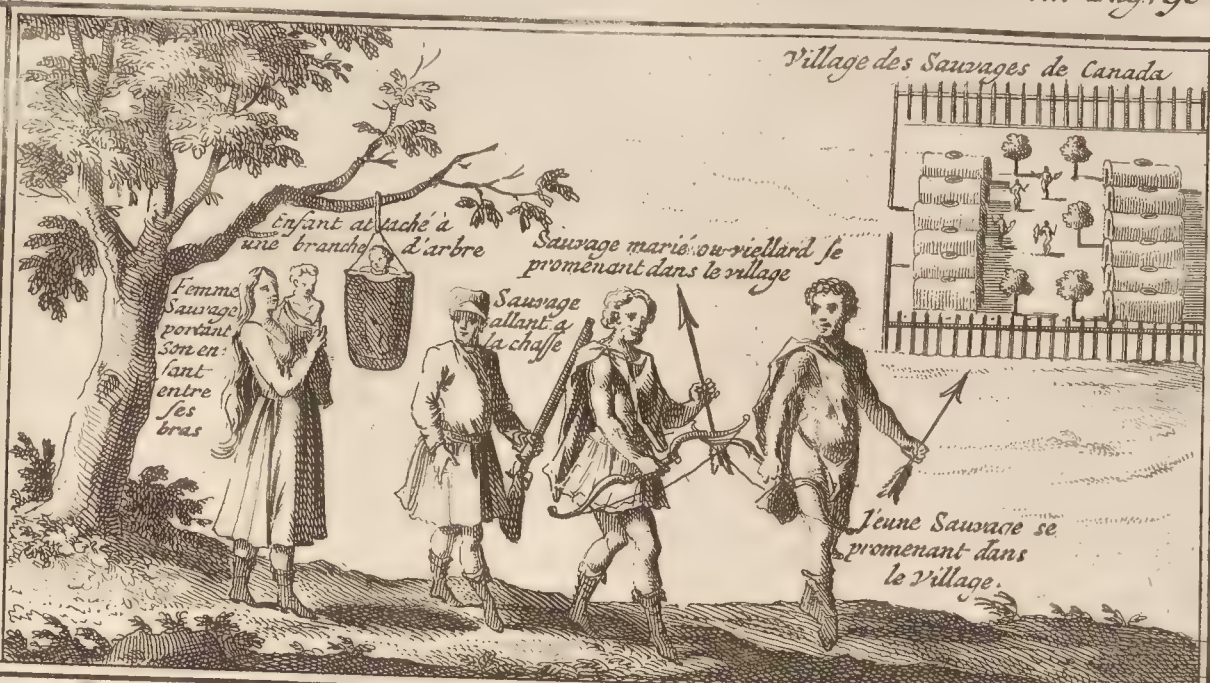 Village des Sauvages de Canada
Enfant attaché à
une branche d'arbre
Sauvage marié ou viellard se
promenant dans le village
Femme
Sauvage
portant
Son en=
fant
entre
ses
bras
Sauvage
allant a
la chasse
Jeune Sauvage se
promenant dans
le Village.